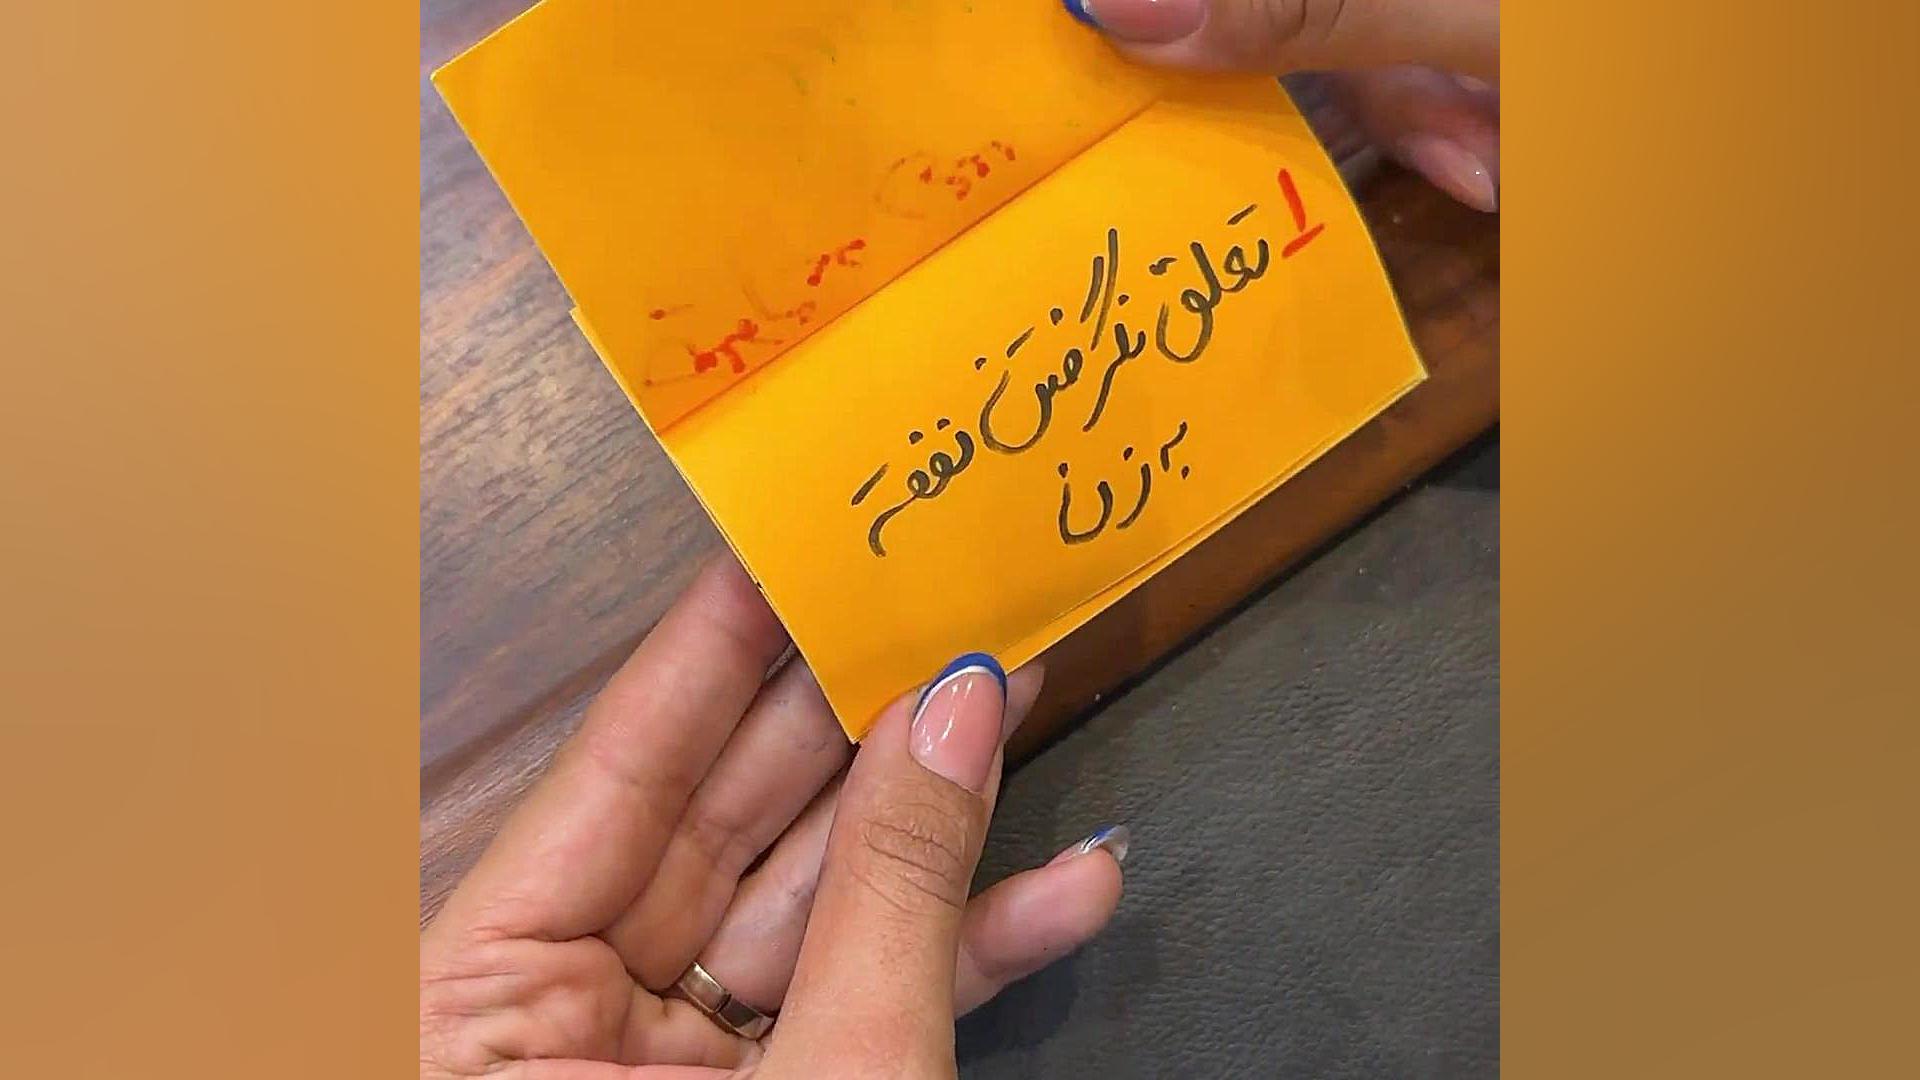 1 تعلق نگرفتن نفقه
به زن